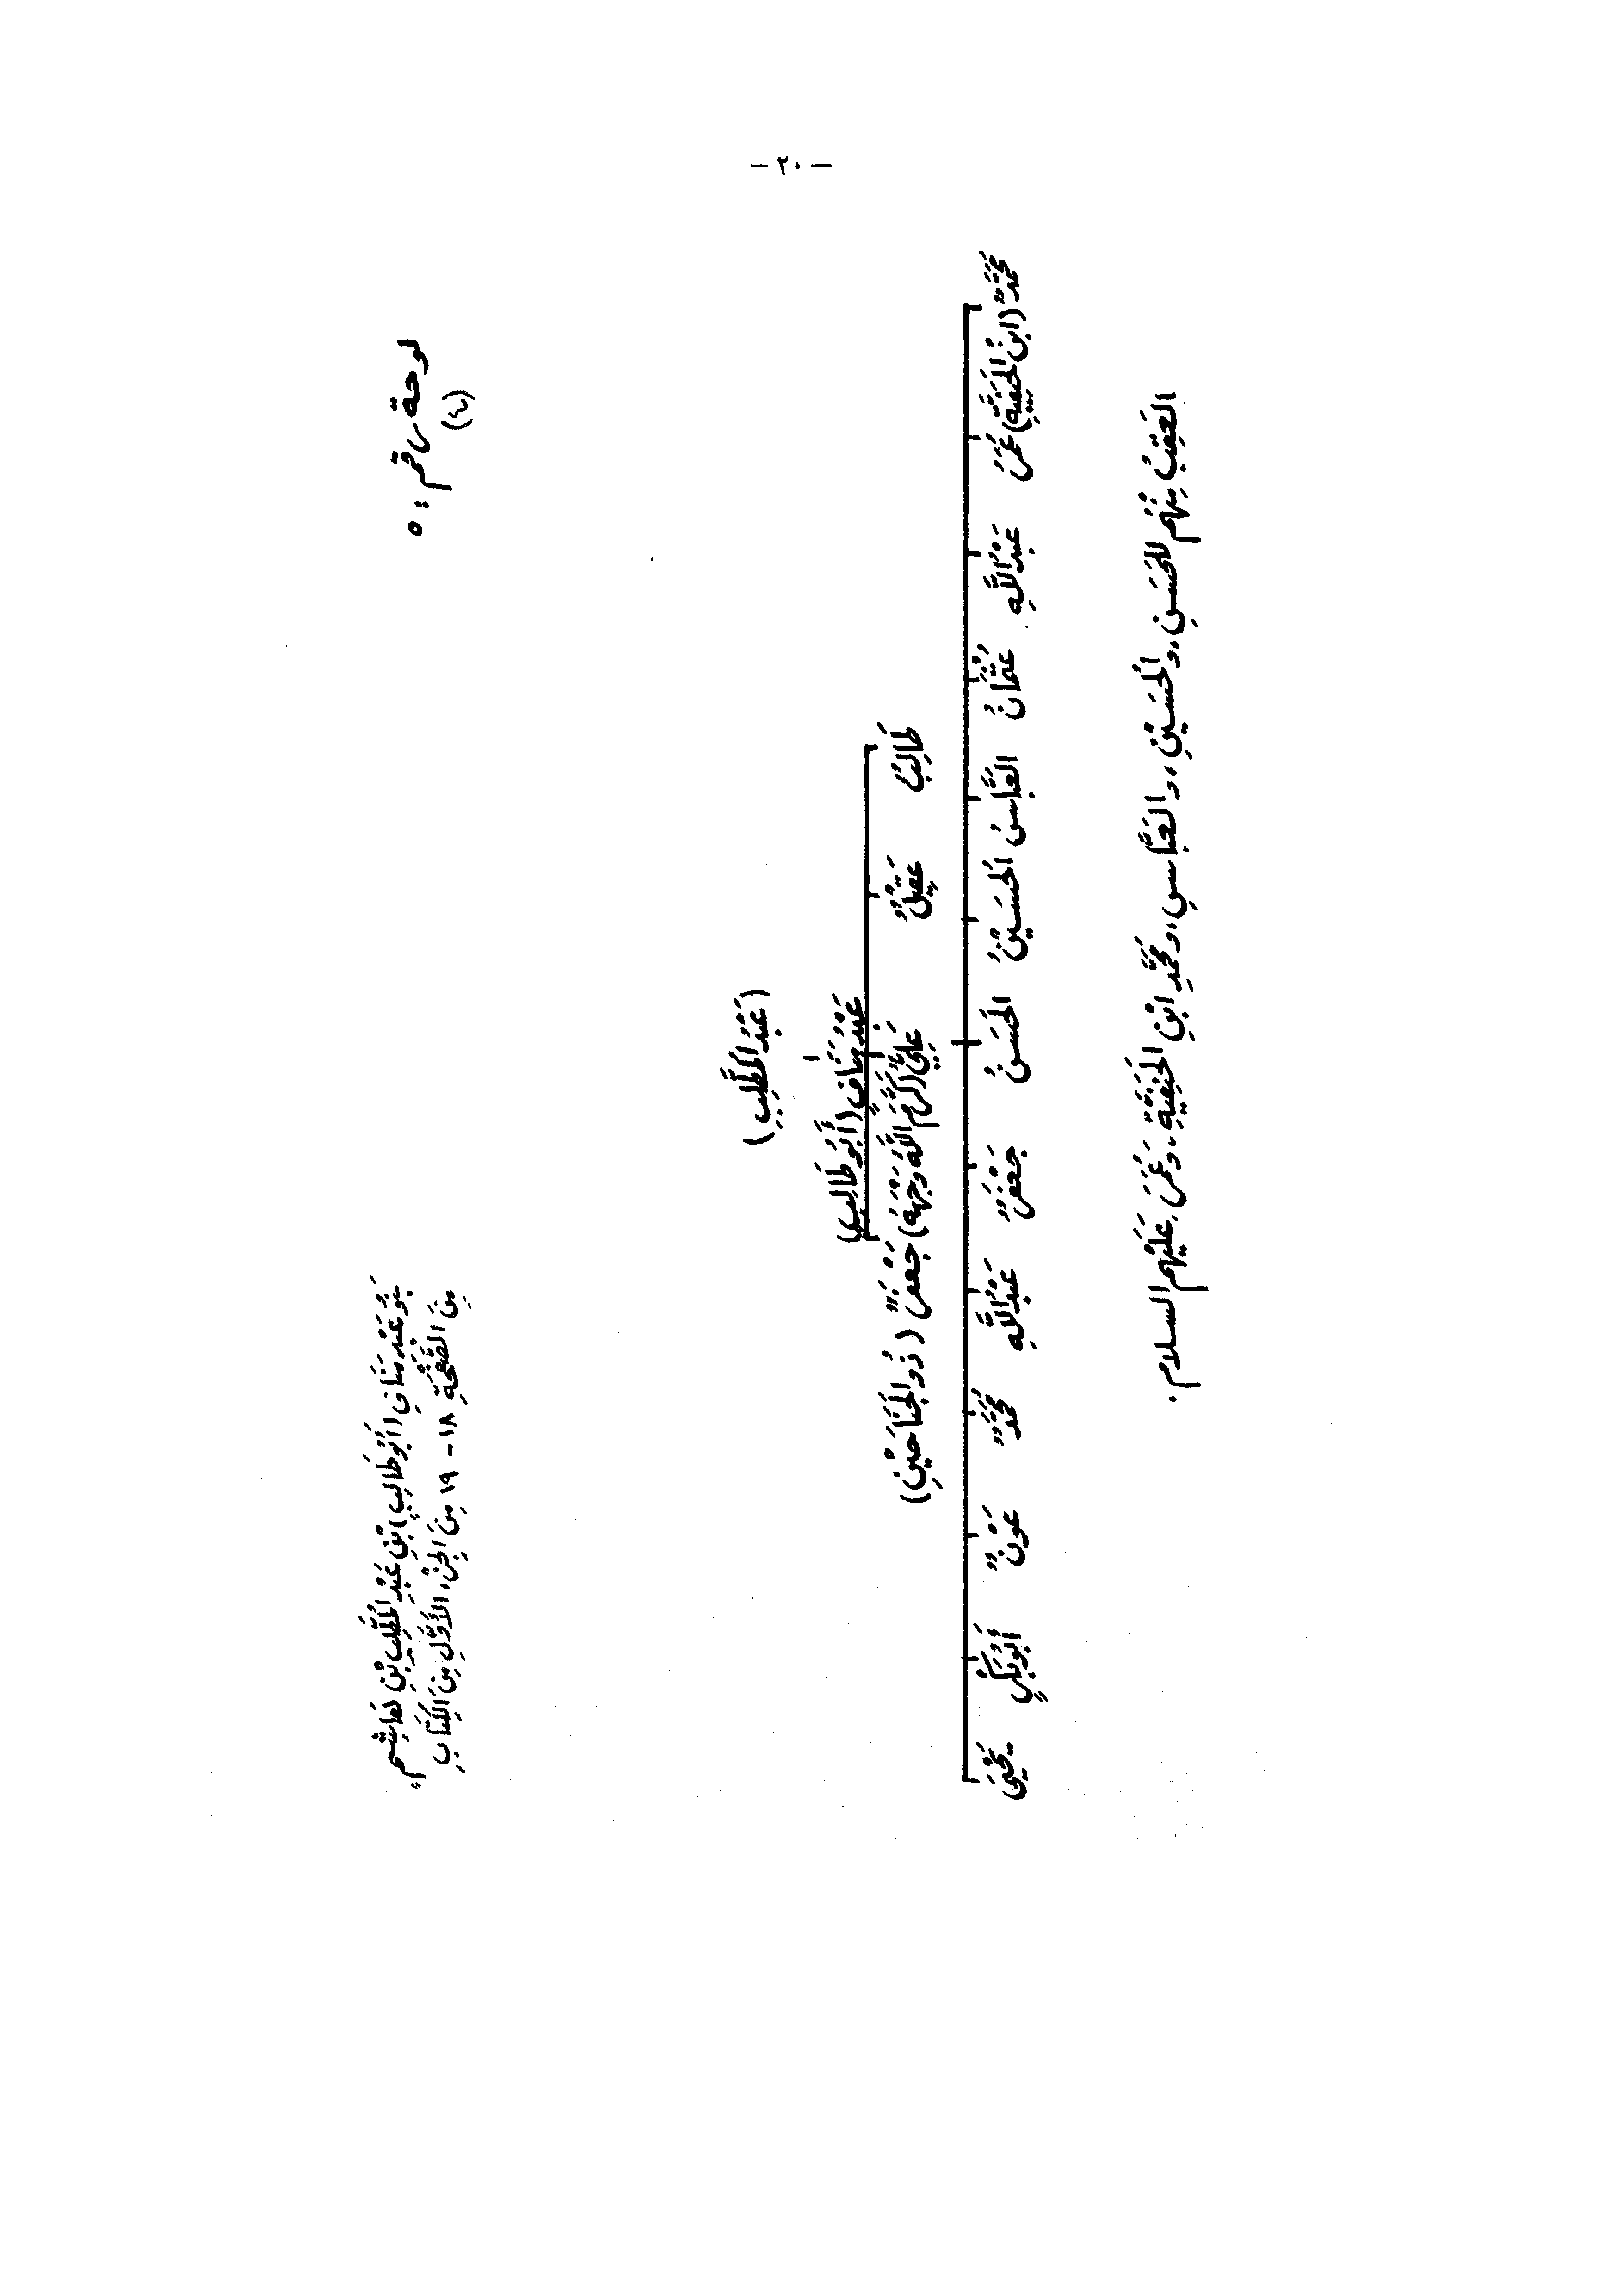 - ٢٠ -
بَنُو عَبْدِ مَنَافٍ (أَبُو طَالِبٍ) بْنِ عَبْدِ الْمُطَّلِبِ بْنِ هَاشِمٍ،
مِنَ الصَّفْحَةِ ١٨ - ١٩ مِنَ الجُزْءِ الأَوَّلِ مِنَ الكِتَابِ
لوحة رقم : ٥
(٤)
(عَبْدُ المُطَّلِبِ)
عَبْدُ مَنَافٍ (أَبُو طَالِبٍ)
طَالِبٌ
عَقِيْلٌ
عَلِيٌّ (كَرَّمَ اللَّهُ وَجْهَهُ)
جَعْفَرٌ (ذُو الجَنَاحَيْنِ)
مُحَمَّدٌ (ابْنُ الحَنَفِيَّةِ)
عُمَرُ
عَبْدُ اللَّهِ
عُثْمَانُ
العَبَّاسُ
الحُسَيْنُ
الحَسَنُ
جَعْفَرٌ
عَبْدُ اللَّهِ
مُحَمَّدٌ
عَوْنٌ
أَبُو بَكْرٍ
يَحْيَى
العَقِبُ مِنْهُم لِلحَسَنِ، والْحُسَيْنِ، والعَبَّاسِ، ومُحَمَّدِ ابْنِ الحَنَفِيَّةِ، وَعُمَرَ، عَلَيْهِم السلام.